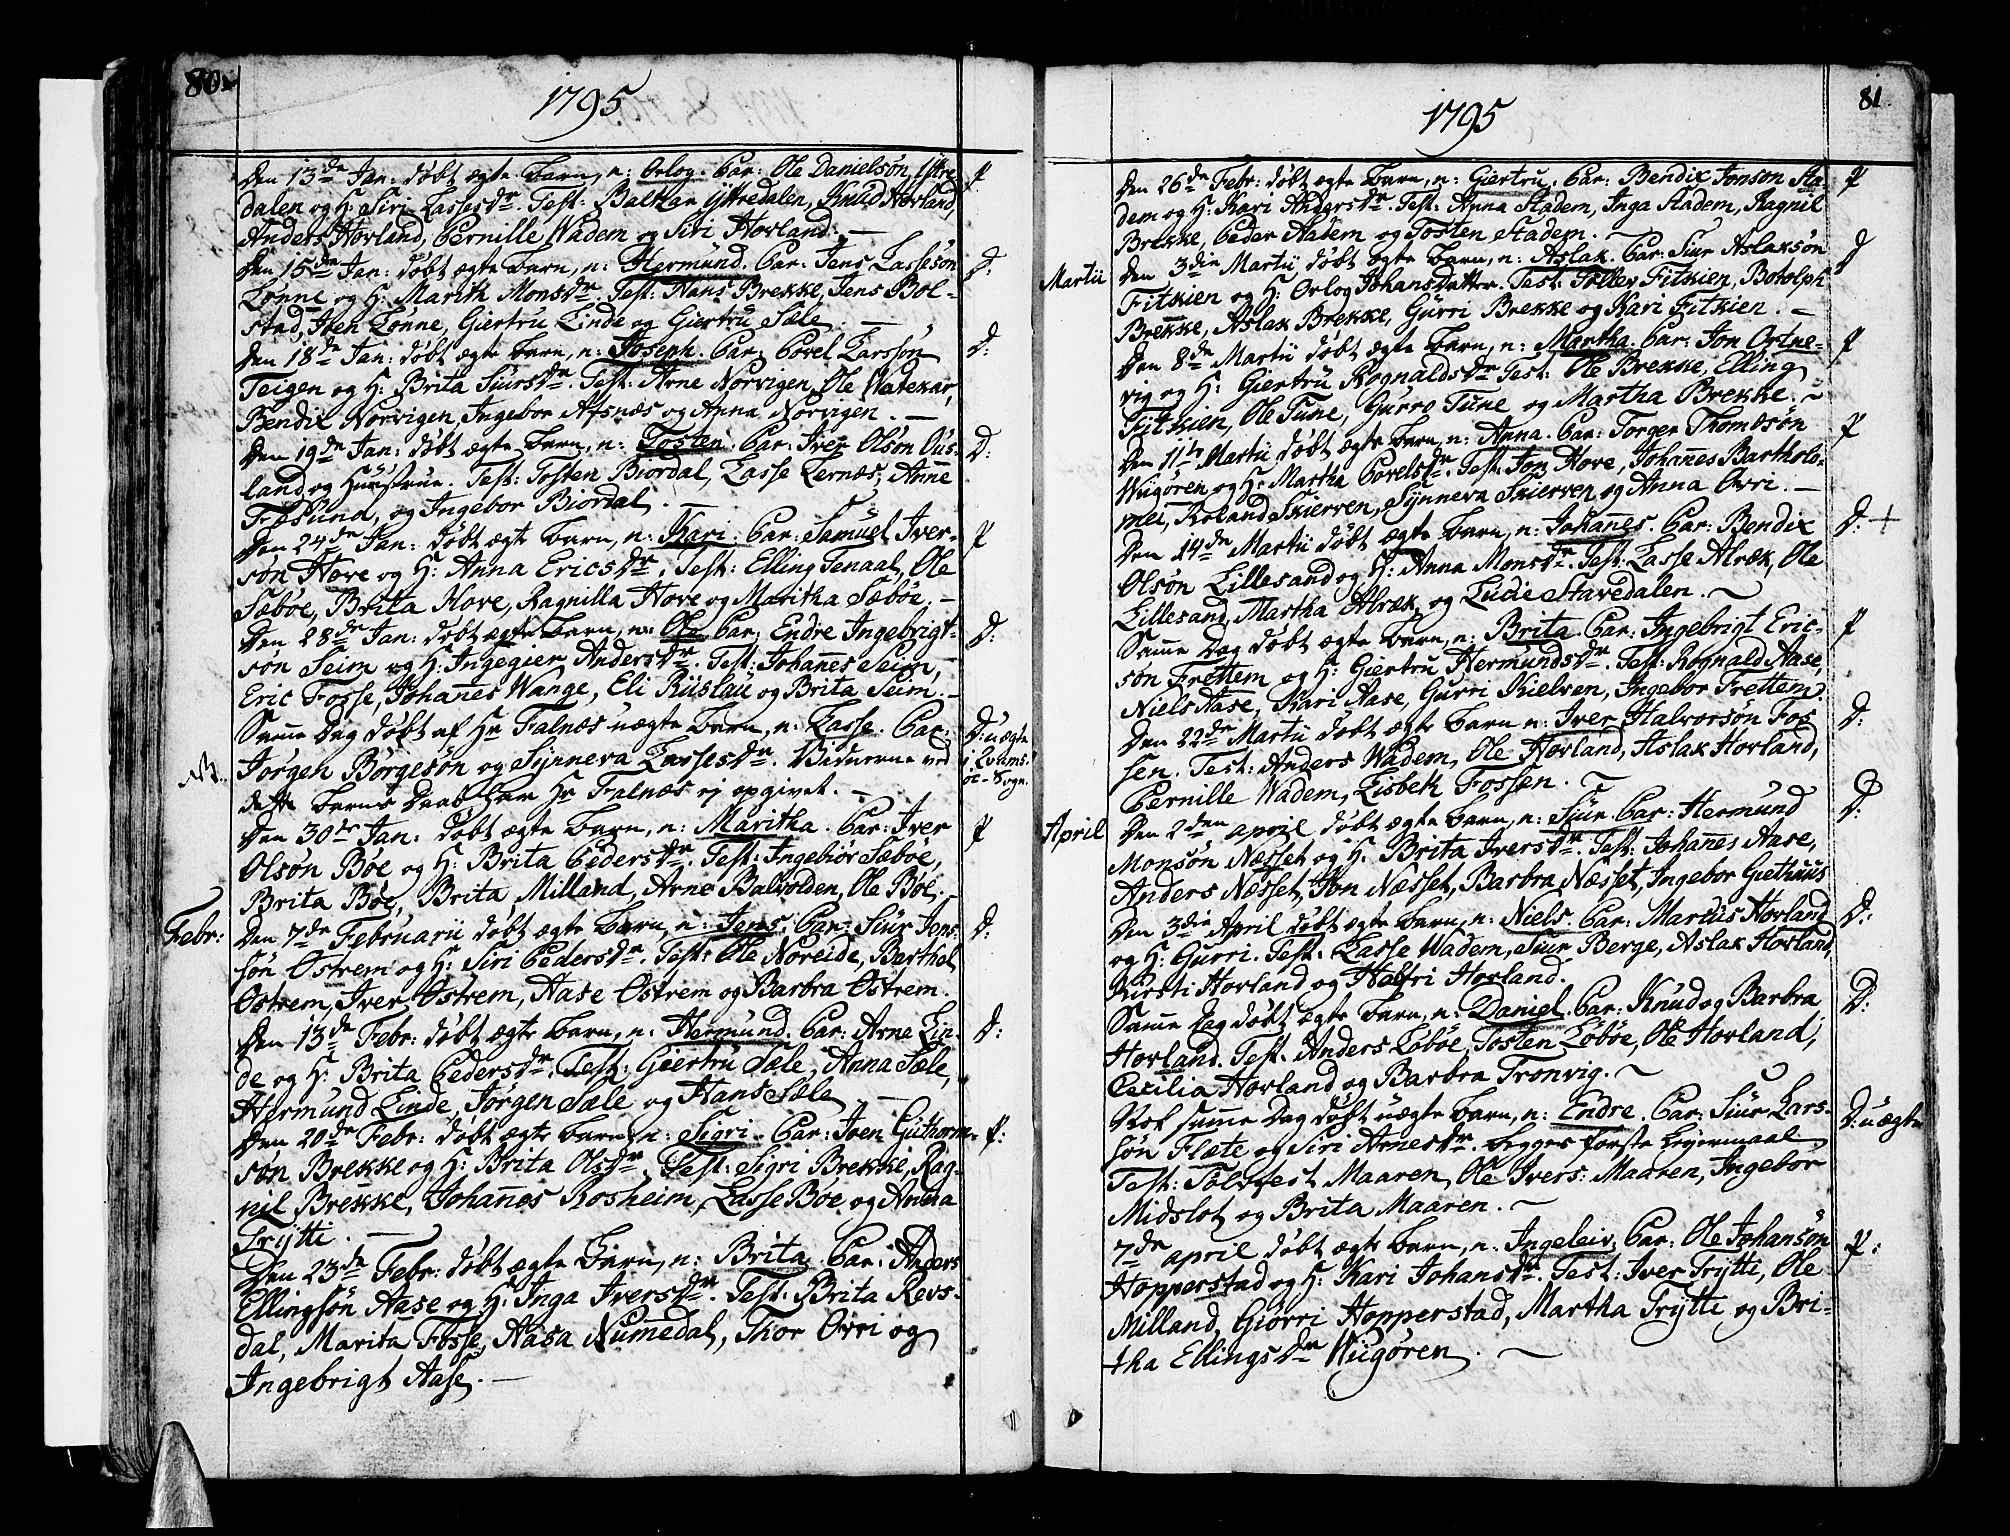 80.
1795
Den 13de Jan: døbt ægte Barn, n: Orlog. Par: Ole Danielsøn Ÿttre P
dalen og H: Siri Lassesdr. Test: Baltzar Ÿttredalen, Knud Hovland,
Anders Hovland, Pernille Wadem og Siri Hovland. —
Den 15de Jan: døbt ægte Barn, n: Hermund. Par: Jens Lassesøn D:
Lønne og H: Marith Monsdr. Test: Hans Brekke, Jens Bol-
stad, Iven Lønne, Giertru Linde og Giertru Sæle. —
Den 18de Jan: døbt ægte Barn, n: Joseph. Par: Povel Larssøn D:
Teigen og H: Brita Siursdr. Test: Arne Norvigen, Ole Watekar,
Bendix Norvigen, Ingebor Afsnæs og Anna Norvigen. —
Den 19de Jan: døbt ægte Barn, n: Tosten. Par: Iver Olsøn Ous- D:
land og Hustrue. Test: Tosten Biordal, Lasse Lernæs, Anne
Fræsund, og Ingebor Biordal. —
Den 24de Jan: døbt ægte Barn, n: Kari. Par: Samuel Iver- P
søn Hove og H: Anna Ericsdr. Test: Elling Tenaal, Ole
Sæbøe, Brita Hove, Ragnilla Hove og Maritha Sæbøe. —
Den 28de Jan: døbt ægte Barn, n: Ole. Par: Endre Ingebrigt- D:
søn Seim og H: Ingegier Andersdr. Test: Johannes Seim,
Eric Fosse, Johannes Wange, Eli Rüslau og Brita Seim. —
Samme Dag døbt af Hr Falnæs uægte Barn, n: Lasse. Par: D: uægte
Jørgen Børgesøn og Sÿnneva Lassesdr. Vidnerne ved i Qvams-
NB. dette Barns Daab har Hr Falnæs ej opgivet. — øe-Sogn.
Den 30te Jan: døbt ægte Barn, n: Maritha. Par: Iver P
Olsøn Bøe og H: Brita Pedersdr. Test: Ingebiør Sæbøe,
Brita Bøe, Brita Milland, Arne Balvolden, Ole Bøe. —
Febr: Den 7de Februarii døbt ægte Barn, n: Jens. Par: Siur Jens- D:
søn Østrem og H: Siri Pedersdr. Test: Ole Noreide, Barthel
Østrem, Iver Østrem, Aase Østrem og Barbra Østrem.
Den 13de Febr: døbt ægte Barn, n: Hermund. Par: Arne Lin- D:
de og H: Brita Pedersdr. Test: Giertru Sæle, Anna Sæle,
Hermund Linde, Jørgen Sæle og Hans Sæle. —
Den 20de Febr: døbt ægte Barn, n: Sigri. Par: Iven Guthorm- P:
søn Brekke og H: Brita Olsdr. Test: Sigri Brekke, Rag-
nil Brekke, Johannes Rosheim, Lasse Bøe og Anna
Trÿtti. —
Den 23de Febr: døbt ægte Barn, n: Brita. Par: Anders
Ellingsøn Aase og H: Inga Iversdr. Test: Brita Revs-
dal, Marita Fosse, Aasa Numedal, Thor Ovri og
Ingebrigt Aase. —
81.
1795
Den 26de Febr: døbt ægte Barn, n: Giertru. Par: Bendix Jonsøn Sta- P
dem og H: Kari Andersdr. Test: Anna Stadem, Inga Stadem, Ragnil
Brekke, Peder Stadem og Tosten Stadem. —
Martii Den 3die Martii døbt ægte Barn, n: Aslak. Par: Siur Aslaksøn D
Fitkien og H: Orlog Johans Datter. Test: Tollev Fitkien, Botolph
Brekke, Aslak Brekke, Gurri Brekke og Kari Fitkien. —
Den 8de Martii døbt ægte Barn, n: Martha. Par: Jon Ortne- P
vig og H: Giertru Rognaldsdr. Test: Ole Brekke, Elling
Fitkien, Ole Tune, Gurro Tune og Martha Brekke. ~
Den 11te Martii døbt ægte Barn, n: Anna. Par: Torger Thomdsøn P
Wiigøren og H: Martha Povelsdr. Test: Jon Hove, Johannes Bartholo-
mei, Roland Skierven, Sÿnneva Skierven og Anna Ovri. —
Den 14de Martii døbt ægte Barn, n: Johannes. Par: Bendix D: +
Olsøn Lillesand og H: Anna Monsdr. Test: Lasse Alrek, Ole
Lillesand, Martha Alræk, og Lucie Stavedalen. ~
Samme Dag døbt ægte Barn, n: Brita. Par: Ingebrigt Eric- P
søn Frettem og H: Giertru Hermundsdr. Test: Rognald Aase,
Niels Aase, Kari Aase, Gurri Kielven, Ingebor Frettem.
Den 22de Martii døbt ægte Barn n: Iver Halvorsøn Fos D:
sen. Test: Anders Wadem, Ole Hovland, Aslak Hovland,
Pernille Wadem, Lisbeth Fossen. ~
April Den 2den april døbt ægte Barn, n: Siur. Par: Hermund D:
Monsøn Næsset og H: Brita Iversdr. Test: Johannes Aase,
Anders Næsset, Jon Næsset, Barbra Næsset, Ingebor Giethuus
Den 3die April døbt ægte Barn, n: Niels. Par: Marcus Hovland D:
og H: Gurri. Test: Lasse Wadem, Siur Berge, Aslak Hovland,
Kirsti Hovland og Hovland.
Samme Dag døbt ægte Barn, n: Daniel. Par: Knud og Barbra D:
Hovland. Test: Anders Løbøe, Tosten Løbøe, Ole Hovland,
Cecilia Hovland og Barbra Tronvig. ~
Nok samme Dag døbt uægte Barn, n: Endre. Par: Siur Lars- D: uægte
søn Flæte og Siri Arnesdr. begges første Leyermaal
Test: Tolvfest Maaren, Ole Ivers: Maaren, Ingebor
Midslot og Brita Maaren. ~
7de april døbt ægte Barn, n: Ingeleiv. Par: Ole Johansøn P:
Hopperstad og H: Kari Johansdr. Test: Iver Trÿtti, Ole
Milland, Giørri Hopperstad, Martha Trÿtti, og Bri-
tha Ellingsdr Wiigøren. ~